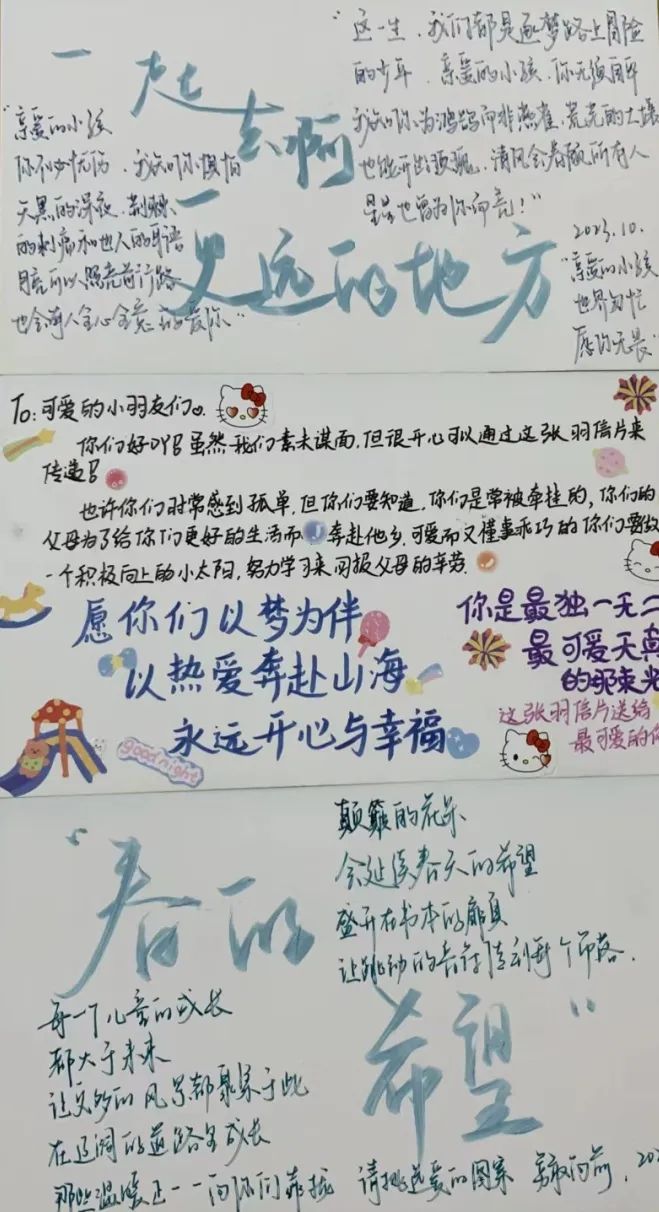 一起去啊
更远的地方
"亲爱的小孩
你不必忧伤,我知你惧怕
天黑的深夜,荆棘
的刺痛和他人的耳语
月亮可以照亮前行路
也会有人全心全意的爱你"
"这一生,我们都是逐梦路上冒险
的少年,亲爱的小孩,你无须自卑
我知你为鸿鹄而非燕雀,荒芜的土壤
也能开出玫瑰,清风会眷顾所有人
星星也曾为你而亮!"
2023.10.
"亲爱的小孩
世界匆忙
愿你无畏"
To:可爱的小羽友们
你们好吖!虽然我们素未谋面,但很开心可以通过这张羽信片来
传递
也许你们时常感到孤单,但你们要知道,你们是常被牵挂的,你们的
父母为了给你们更好的生活而奔赴他乡,可爱而又懂事乖巧的你们要做
一个积极向上的小太阳,努力学习来回报父母的辛劳.
愿你们以梦为伴
以热爱奔赴山海
永远开心与幸福
你是最独一无二
最可爱天真
的那束光
这张羽信片送给
最可爱的你
goodnight
"春的
希望"
颠簸的花朵
会延续春天的希望
盛开在书本的扉页
让跳动的音符传到每个角落.
每一个儿童的成长
都大于未来
让足够的风景都聚集于此
在辽阔的道路里成长
那些温暖正一一向你们靠拢
请挑选爱的图案 勇敢向前,202